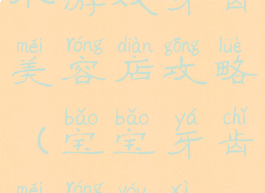 游 戏 牙 齿
měi róng diàn gōng lüè
美 容 店 攻 略
bǎo bǎo yá chǐ
（ 宝 宝 牙 齿
měi róng yóu xì